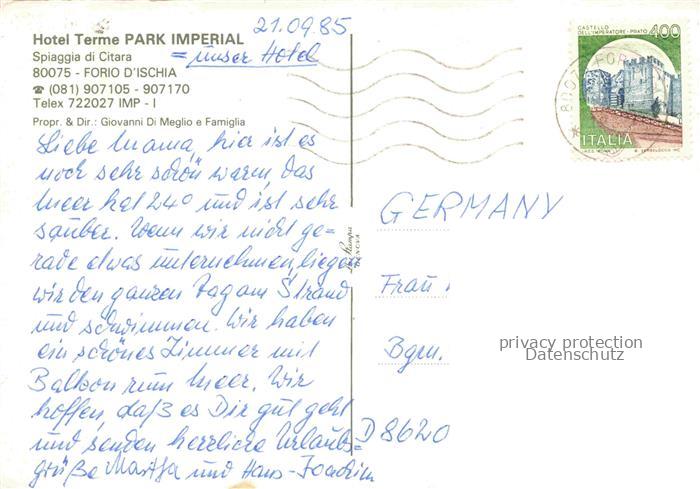 21.09.85
Hotel Terme PARK IMPERIAL
= unser Hotel
Spiaggia di Citara
80075 - FORIO D'ISCHIA
☎ (081) 907105 - 907170
Telex 722027 IMP - I
Propr. & Dir.: Giovanni Di Meglio e Famiglia
Liebe Mama, hier ist es
noch sehr schön warm, das
Meer hat 24° und ist sehr
sauber. Wenn wir nicht ge=
rade etwas unternehmen, liegen
wir den ganzen Tag am Strand
und schwimmen. Wir haben
ein schönes Zimmer mit
Balkon zum Meer. Wir
hoffen, daß es Dir gut geht
und senden herzliche Urlaubs=
grüße Martha und Hans-Joachim
CASTELLO
DELL'IMPERATORE - PRATO
400
ITALIA
GERMANY
Frau
Bgm.
D 8620
privacy protection
Datenschutz